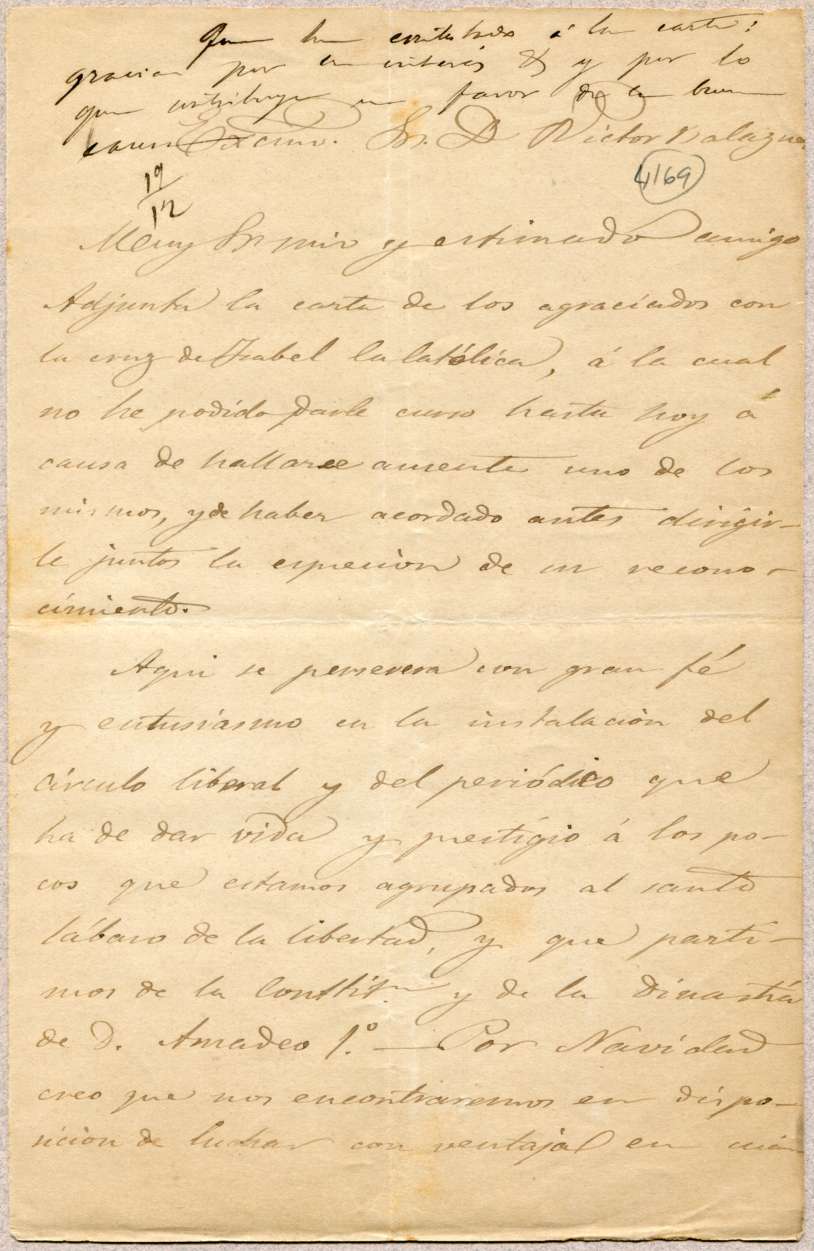 Que he contestado á la carta:
gracias por su interés &. y por lo
que contribuye en favor de la buena
causa
Excmo. Sr. D. Victor Balaguer
19/12
4169
Muy Sr mio y estimado amigo
Adjunta la carta de los agraciados con
la cruz de Isabel la Católica, á la cual
no he podido darle curso hasta hoy á
causa de hallarse ausente uno de los
mismos, y de haber acordado antes dirigir-
le juntos la espresion de su recono-
cimiento.
Aqui se persevera con gran fé
y entusiasmo en la instalación del
círculo liberal y del periódico que
ha de dar vida y prestígio á los po-
cos que estamos agrupados al santo
lábaro de la libertad, y que parti-
mos de la Constit.n y de la dinastía
de D. Amadeo 1.º — Por Navidad
creo que nos encontraremos en dispo-
sicion de luchar con ventaja en